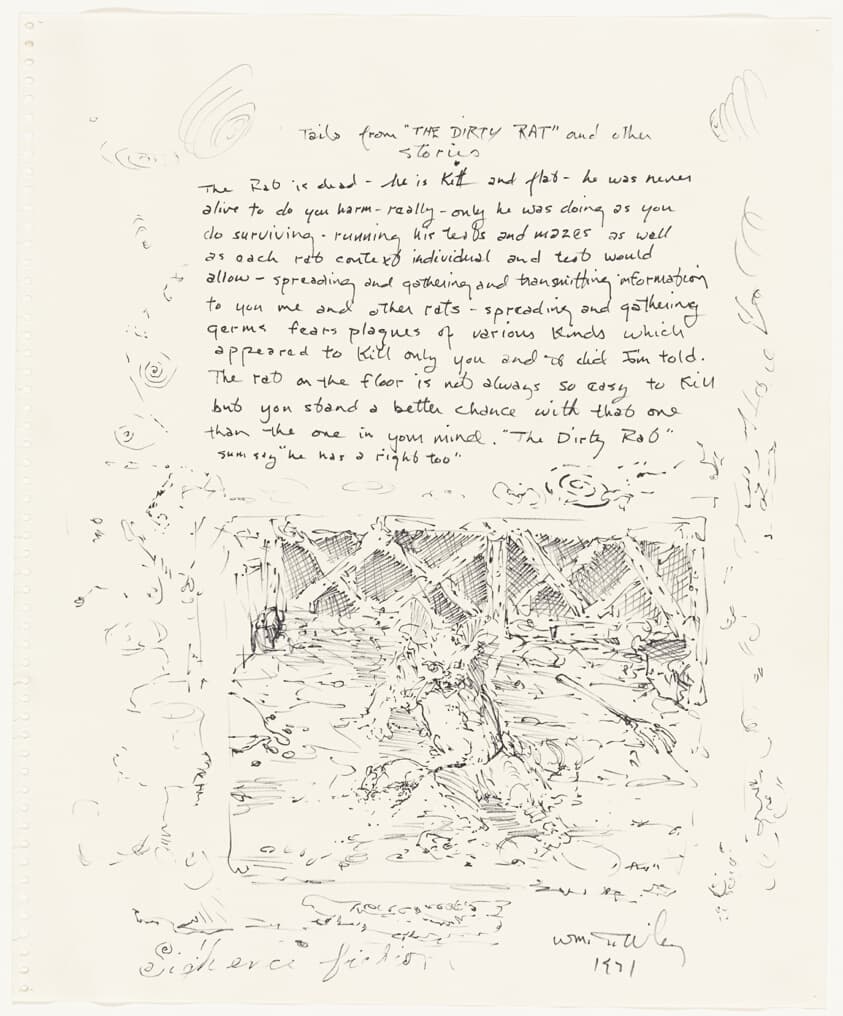 Tails from "THE DIRTY RAT" and other
stories
The Rat is dead - he is Kill and flat - he was never
alive to do you harm - really - only he was doing as you
do surviving - running his tests and mazes as well
as each rat context individual and test would
allow - spreading and gathering and transmitting information
to you me and other rats - spreading and gathering
germs fears plagues of various kinds which
appeared to Kill only you and did Im told.
The rat on the floor is not always so easy to Kill
but you stand a better chance with that one
than the one in your mind. "The Dirty Rat"
sum say "he has a right too"
fiction
Wm T Wiley
1971